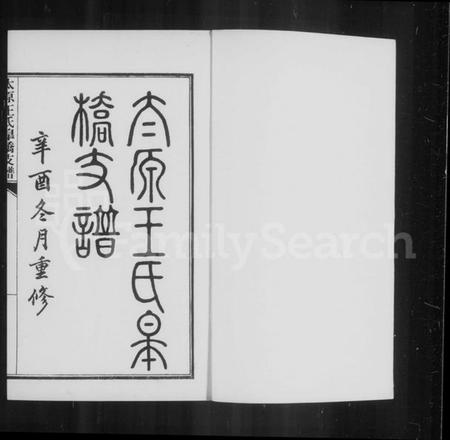 太原王氏皋
橋支譜
辛酉冬月重修
太原王氏皋橋支譜
FamilySearch